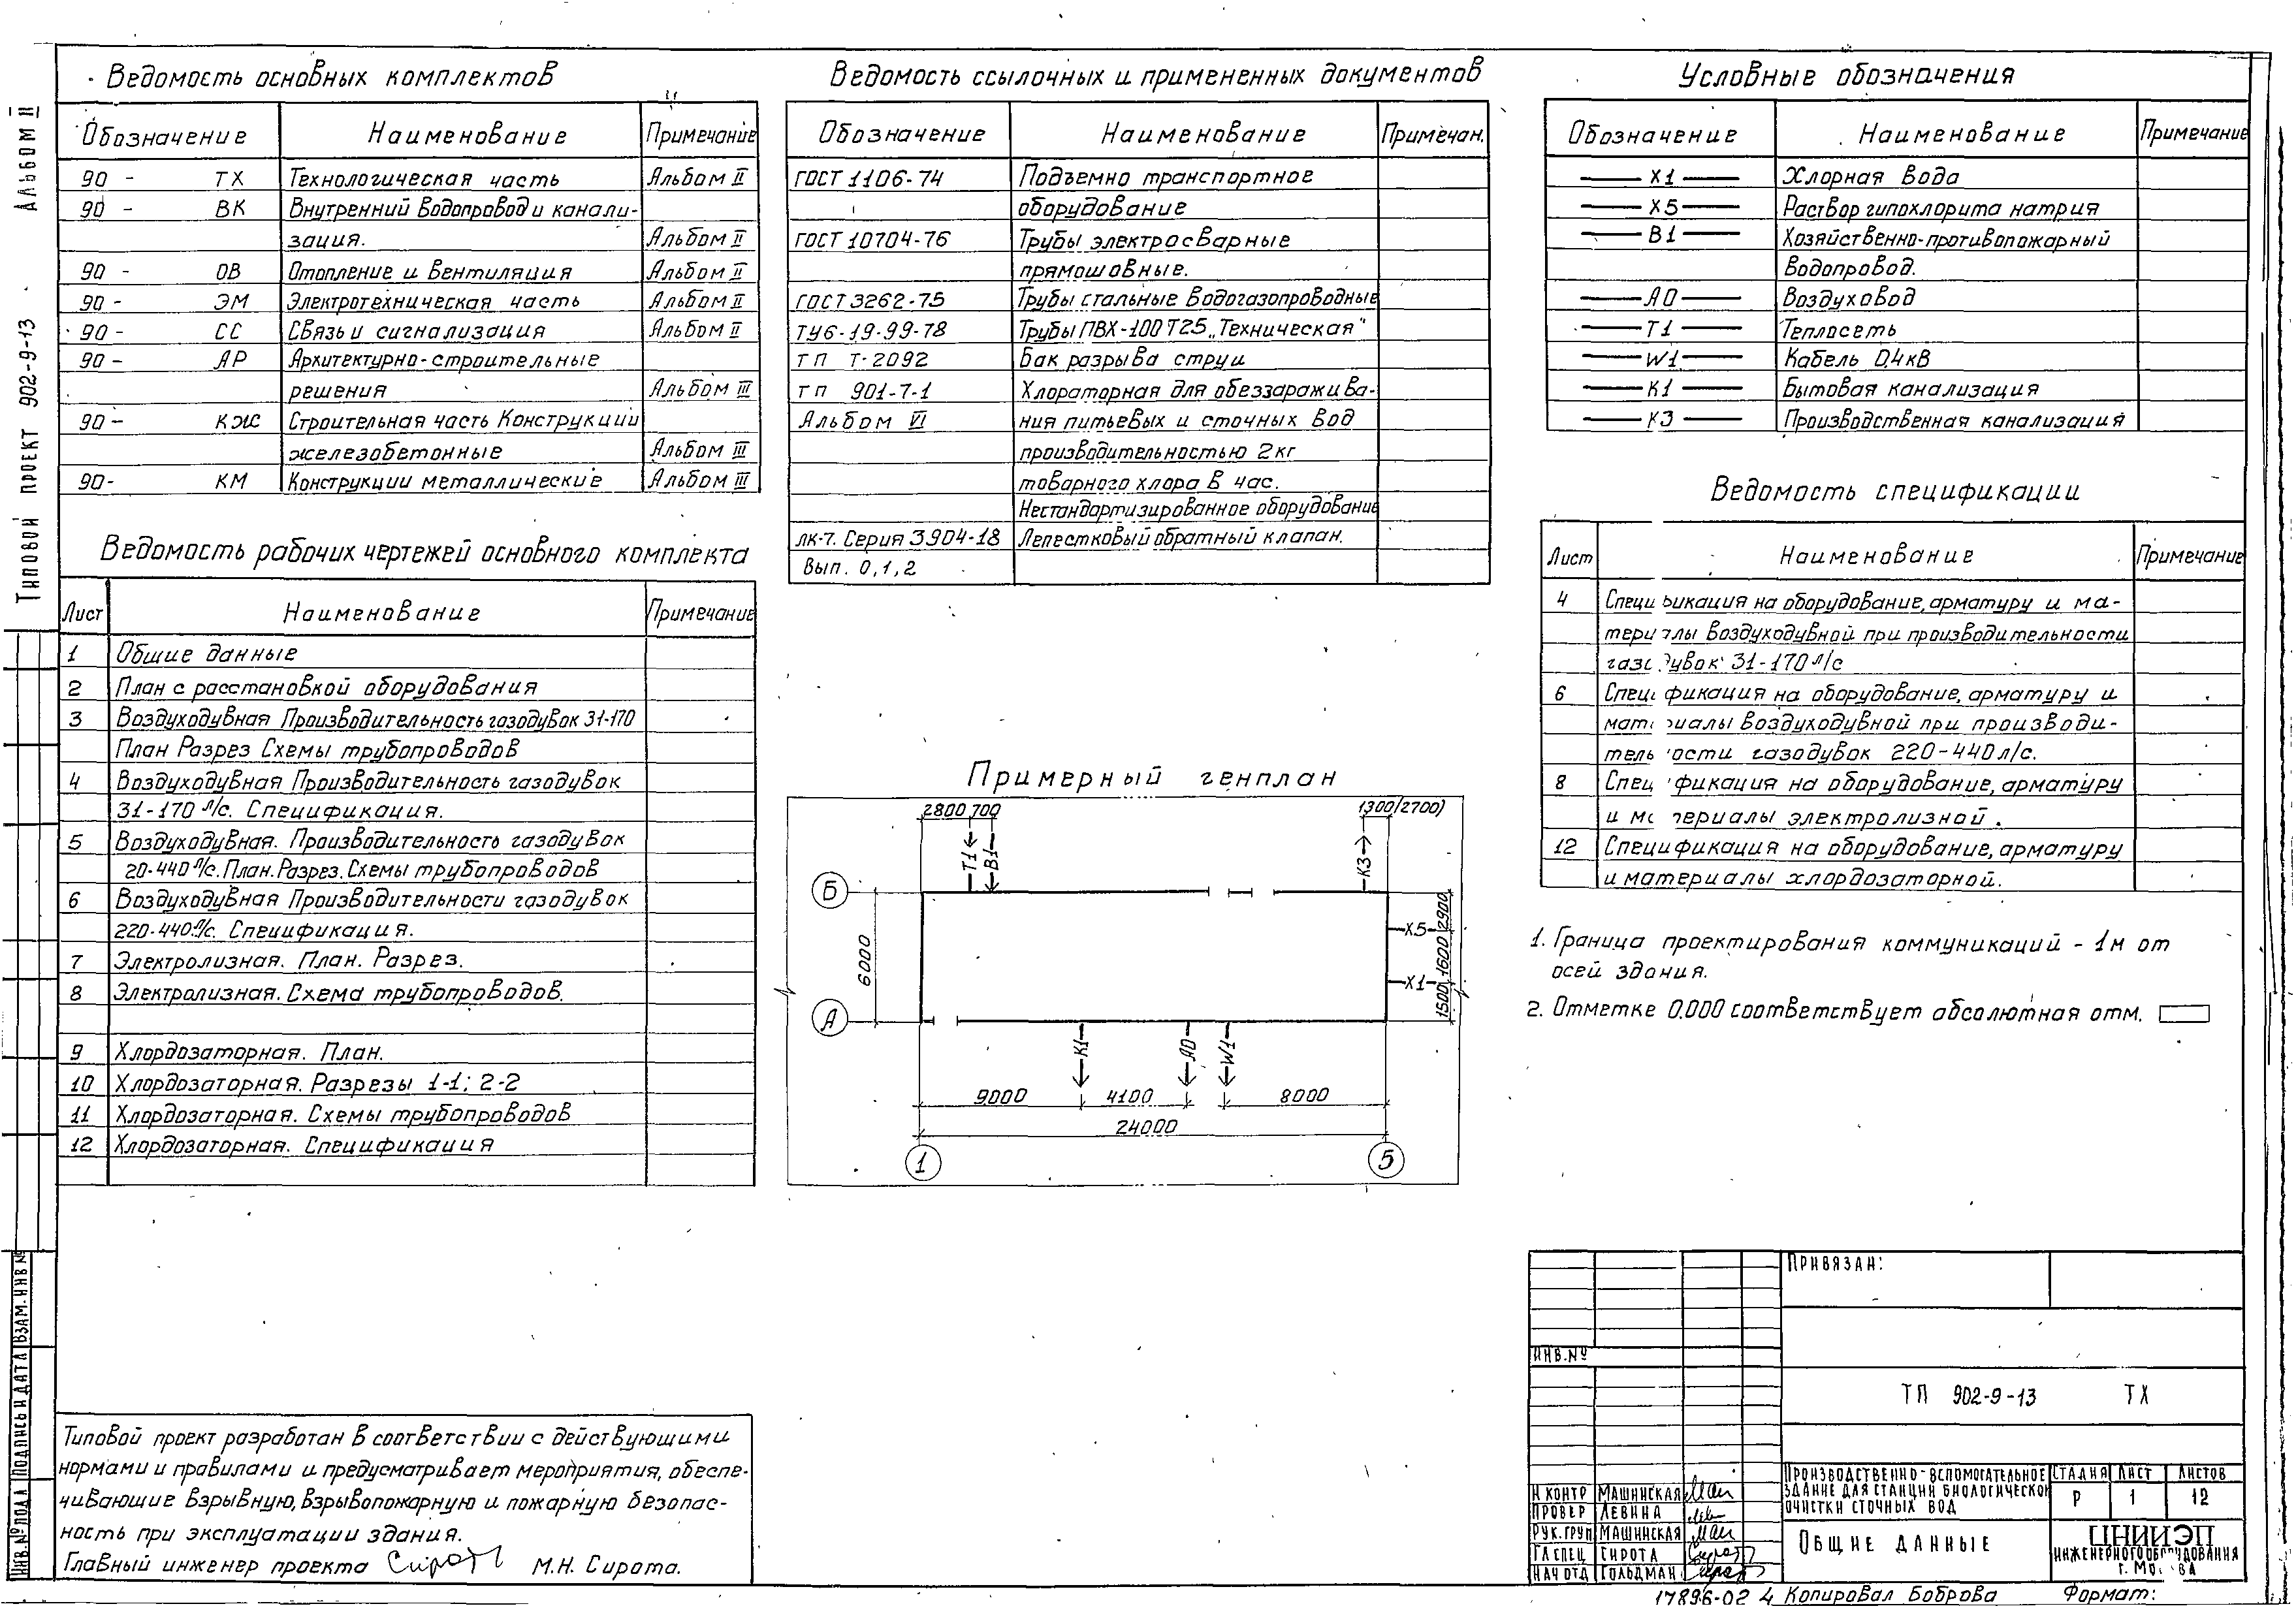 Типовой проект 902-9-13 Альбом II
Ведомость основных комплектов
Обозначение Наименование Примечание
90 - ТХ Технологическая часть Альбом II
90 - ВК Внутренний водопровод и канали-
зация. Альбом II
90 - ОВ Отопление и вентиляция Альбом II
90 - ЭМ Электротехническая часть Альбом II
90 - СС Связь и сигнализация Альбом II
90 - АР Архитектурно-строительные
решения Альбом III
90 - КЖ Строительная часть Конструкции
железобетонные Альбом III
90- КМ Конструкции металлические Альбом III
Ведомость рабочих чертежей основного комплекта
Лист Наименование Примечание
1 Общие данные
2 План с расстановкой оборудования
3 Воздуходувная Производительность газодувок 31-170
План Разрез Схемы трубопроводов
4 Воздуходувная Производительность газодувок
31-170 л/с. Спецификация.
5 Воздуходувная. Производительность газодувок
20-440 л/с. План. Разрез. Схемы трубопроводов
6 Воздуходувная Производительности газодувок
220-440 л/с. Спецификация.
7 Электролизная. План. Разрез.
8 Электролизная. Схема трубопроводов.
9 Хлордозаторная. План.
10 Хлордозаторная. Разрезы 1-1; 2-2
11 Хлордозаторная. Схемы трубопроводов
12 Хлордозаторная. Спецификация
Типовой проект разработан в соответствии с действующими
нормами и правилами и предусматривает мероприятия, обеспе-
чивающие взрывную, взрывопожарную и пожарную безопас-
ность при эксплуатации здания.
Главный инженер проекта Сирота М.Н. Сирота.
Ведомость ссылочных и примененных документов
Обозначение Наименование Примечан.
ГОСТ 1106-74 Подъемно транспортное
оборудование
ГОСТ 10704-76 Трубы электросварные
прямошовные.
ГОСТ 3262-75 Трубы стальные водогазопроводные
ТУ6-19-99-78 Трубы ПВХ-100 Т25 „Техническая"
тп Т-2092 Бак разрыва струи
тп 901-7-1 Хлораторная для обеззаражива-
Альбом VI ния питьевых и сточных вод
производительностью 2кг
товарного хлора в час.
Нестандартизированное оборудование
ЛК-7. Серия 3.904-18 Лепестковый обратный клапан.
Вып. 0,1,2
Примерный генплан
2800 700 1300(2700)
Т1 В1 К3
Б
6000
Х5 2900
1600
Х1 1500
А
К1 А0 W1
9000 4100 8000
24000
1 5
Условные обозначения
Обозначение Наименование Примечание
Х1 Хлорная вода
Х5 Раствор гипохлорита натрия
В1 Хозяйственно-противопожарный
водопровод.
А0 Воздуховод
Т1 Теплосеть
W1 Кабель 0,4кВ
К1 Бытовая канализация
К3 Производственная канализация
Ведомость спецификации
Лист Наименование Примечание
4 Спецификация на оборудование, арматуру и ма-
териалы воздуходувной при производительности
газодувок 31-170 л/с
6 Спецификация на оборудование, арматуру и
материалы воздуходувной при производи-
тельности газодувок 220-440л/с.
8 Спецификация на оборудование, арматуру
и материалы электролизной.
12 Спецификация на оборудование, арматуру
и материалы хлордозаторной.
1. Граница проектирования коммуникаций - 1м от
осей здания.
2. Отметке 0.000 соответствует абсолютная отм.
Привязан:
Инв.№
ТП 902-9-13 ТХ
Н контр Машинская
Провер Левина
Рук.груп Машинская
Гл спец Сирота
Нач отд Гольдман
Производственно-вспомогательное
здание для станции биологической
очистки сточных вод
Стадия Лист Листов
Р 1 12
Общие данные
ЦНИИЭП
инженерного оборудования
г. Москва
17896-02 4 Копировал Боброва Формат:
Инв.№ подл Подпись и дата Взам.инв №